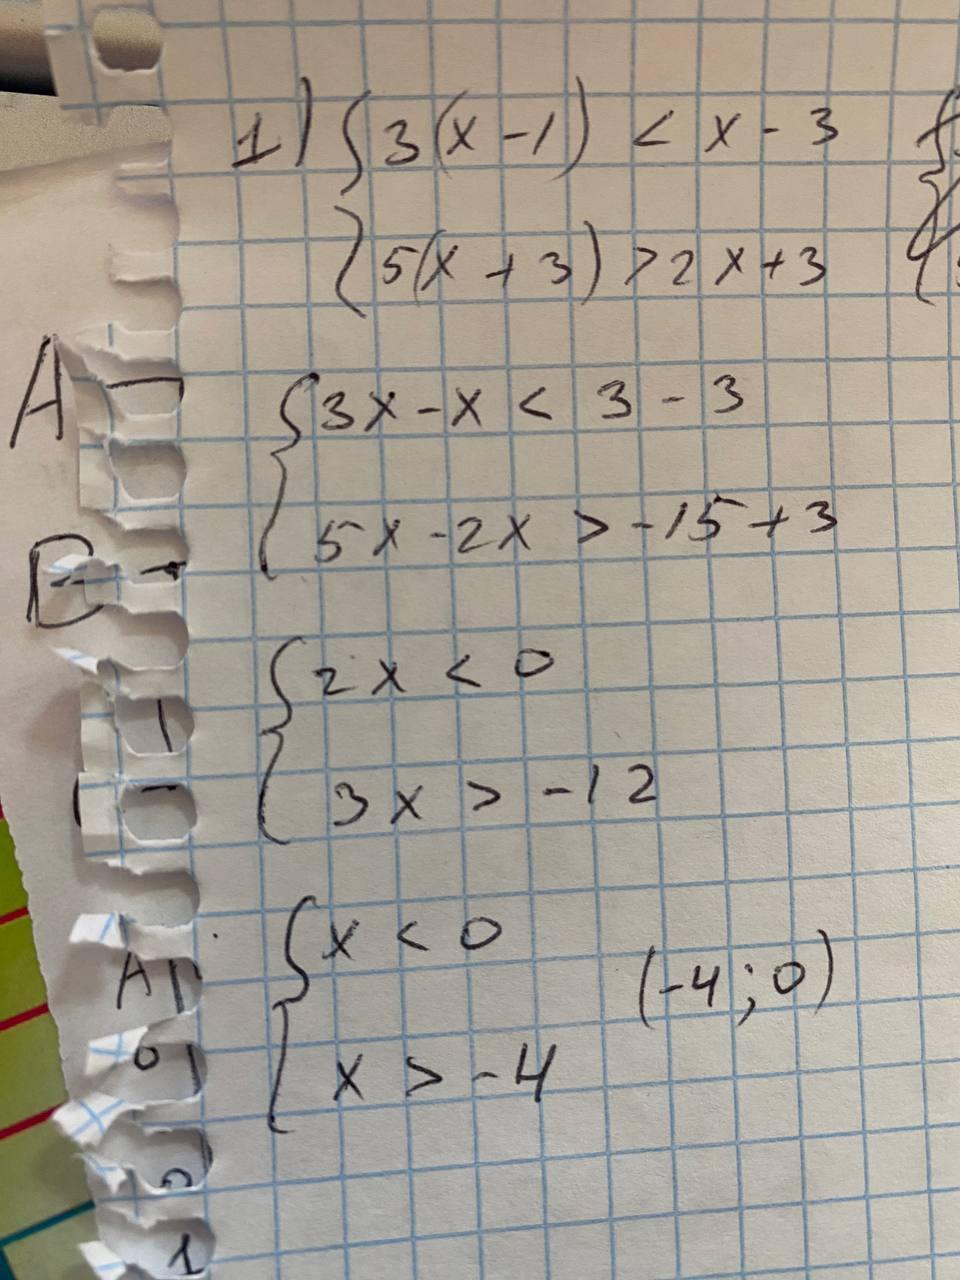 1) { 3(x - 1) < x - 3
5(x + 3) > 2x + 3
A
{ 3x - x < 3 - 3
5x - 2x > -15 + 3
{ 2x < 0
3x > -12
{ x < 0
(-4; 0)
x > -4
A
0
1